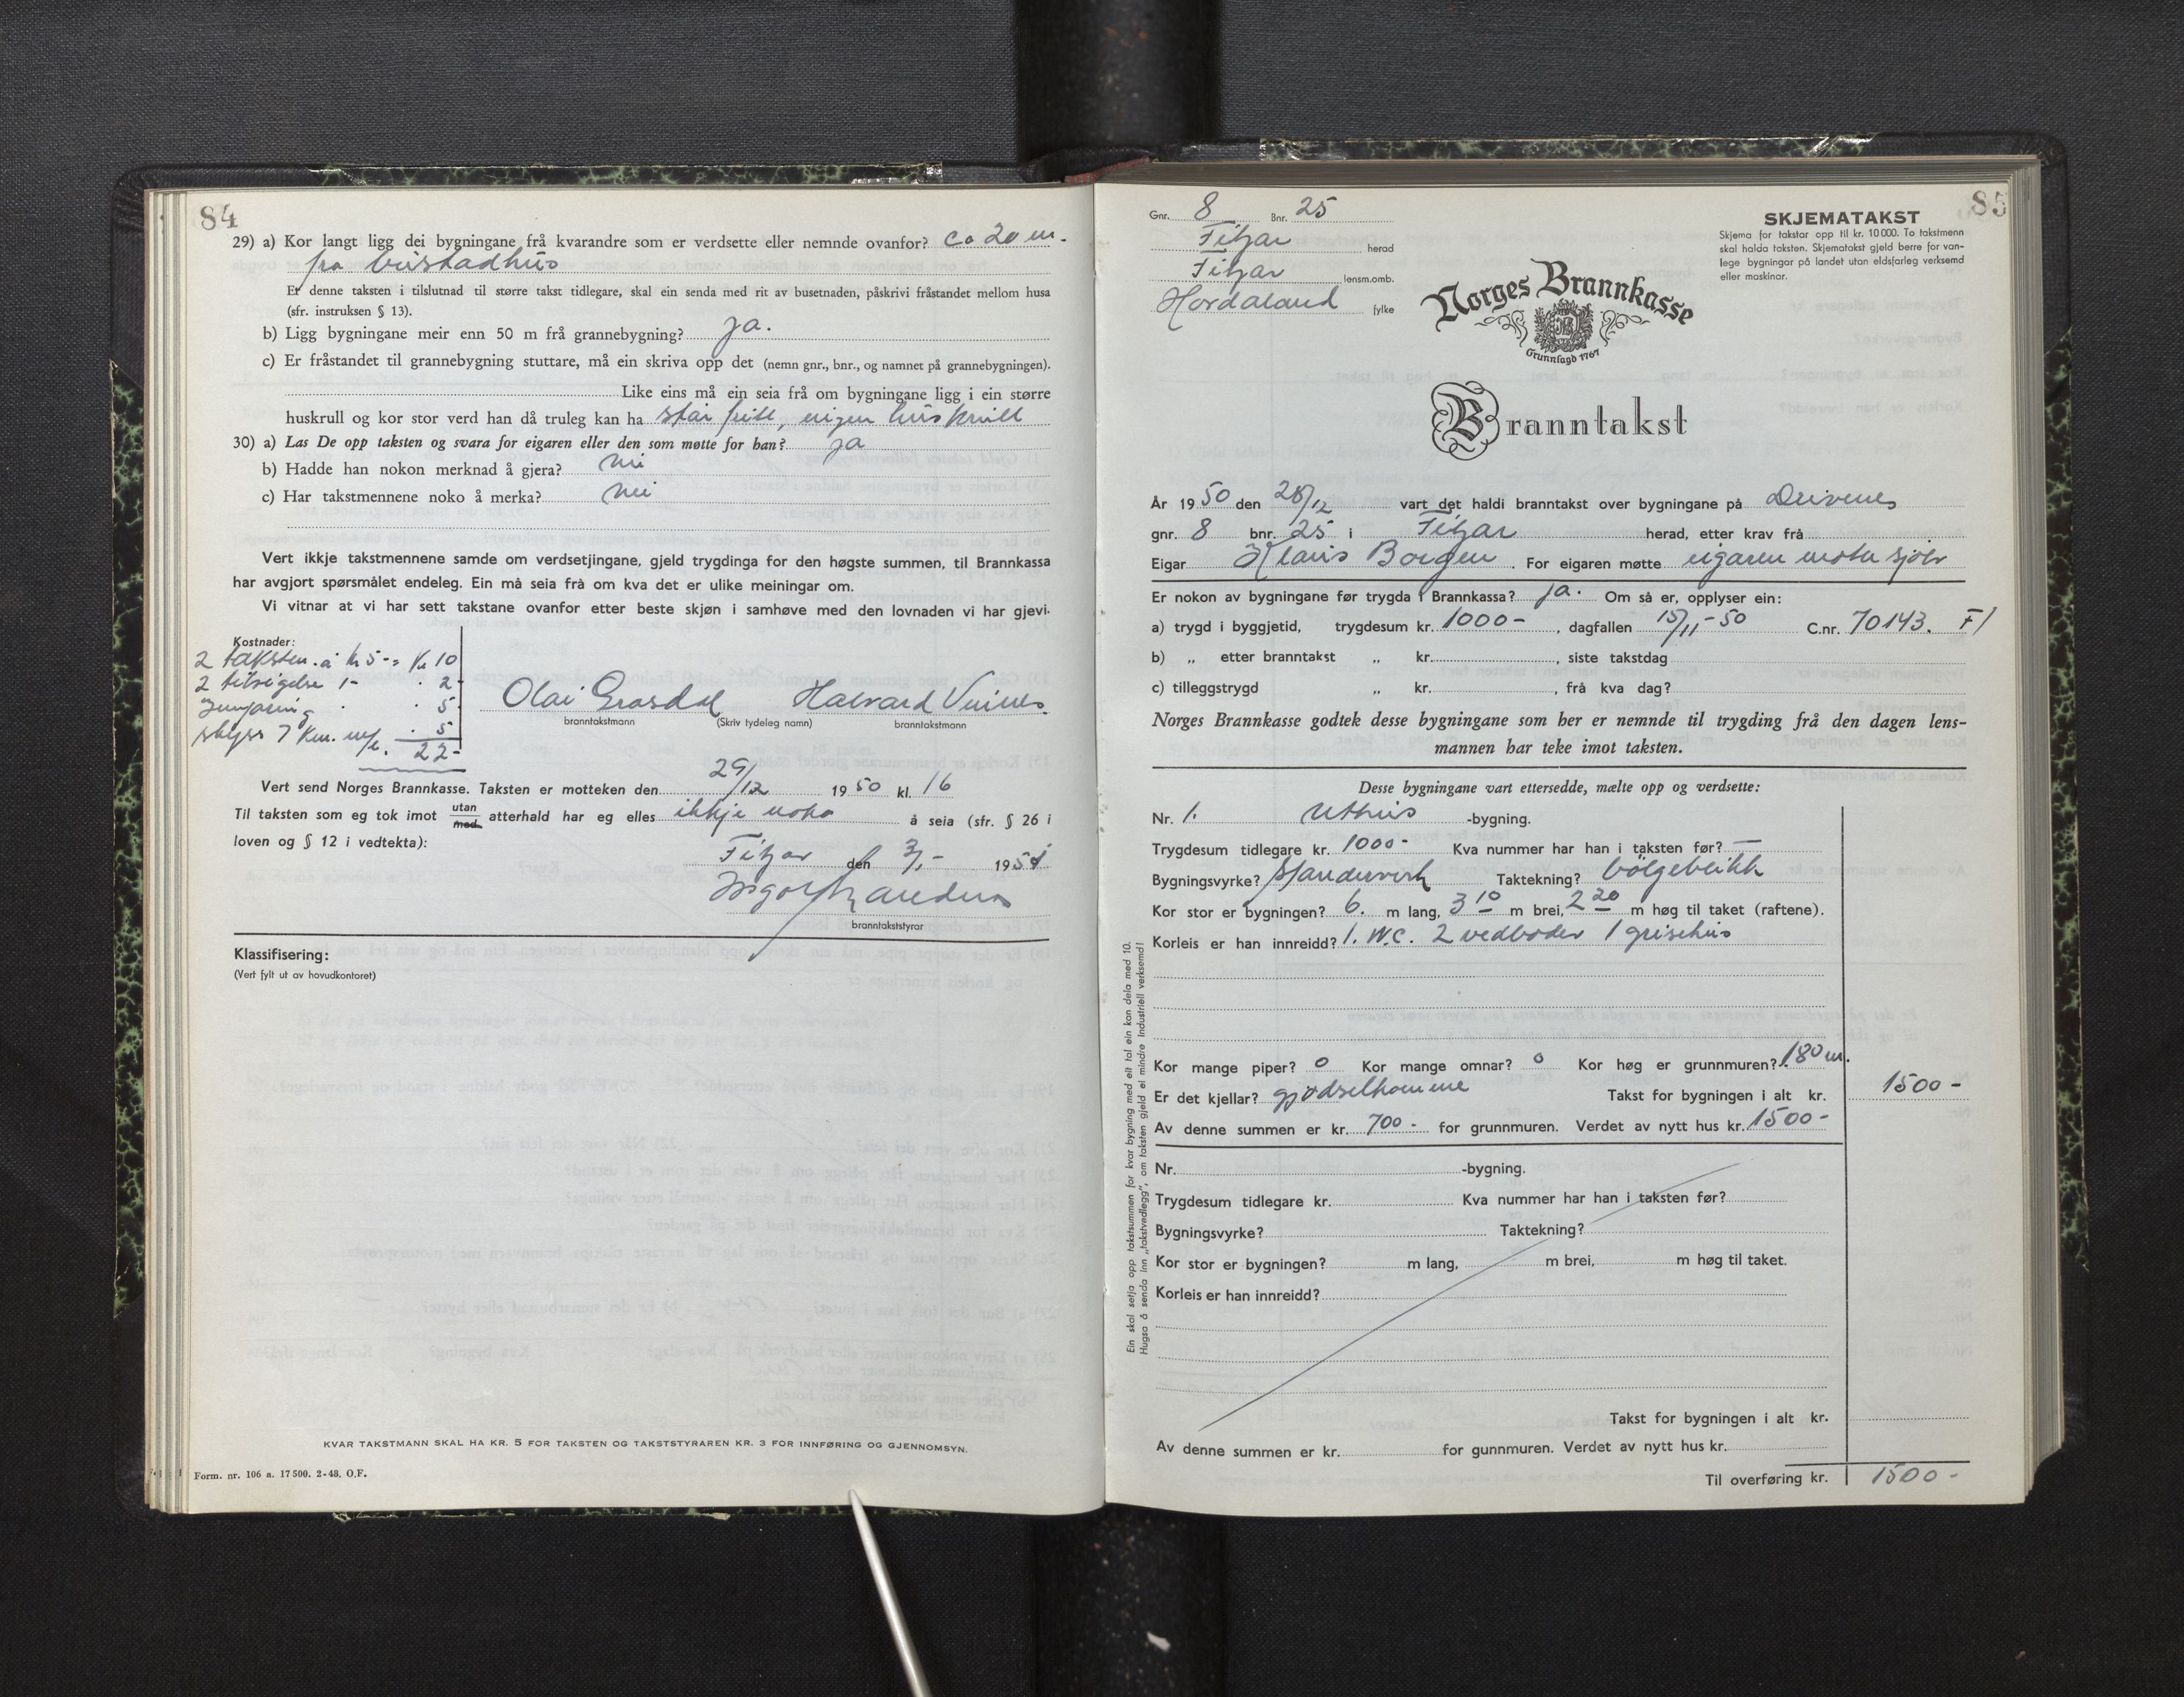 84
29) a) Kor langt ligg dei bygningane frå kvarandre som er verdsette eller nemnde ovanfor? ca 20 m.
fra bustadhus
Er denne taksten i tilslutnad til større takst tidlegare, skal ein senda med rit av busetnaden, påskrivi fråstandet mellom husa
(sfr. instruksen § 13).
b) Ligg bygningane meir enn 50 m frå grannebygning? ja.
c) Er fråstandet til grannebygning stuttare, må ein skriva opp det (nemn gnr., bnr., og namnet på grannebygningen).
Like eins må ein seia frå om bygningane ligg i ein større
huskrull og kor stor verd han då truleg kan ha står fritt, eigen huskrull
30) a) Las De opp taksten og svara for eigaren eller den som møtte for han? ja
b) Hadde han nokon merknad å gjera? nei
c) Har takstmennene noko å merka? nei
Vert ikkje takstmennene samde om verdsetjingane, gjeld trygdinga for den høgste summen, til Brannkassa
har avgjort spørsmålet endeleg. Ein må seia frå om kva det er ulike meiningar om.
Vi vitnar at vi har sett takstane ovanfor etter beste skjøn i samhøve med den lovnaden vi har gjevi.
Kostnader:
2 taksten. a kr 5 -= kr 10
2 tilsigelse 1- . 2-
. . 5
skyss 7 km. . 5
22-
Olai Halvard
branntakstmann (Skriv tydeleg namn) branntakstmann
Vert send Norges Brannkasse. Taksten er motteken den 29/12 1950 kl. 16
Til taksten som eg tok imot utan med atterhald har eg elles ikkje noko å seia (sfr. § 26 i
loven og § 12 i vedtekta):
Fitjar den 3/1- 1951
branntakststyrar
Klassifisering:
(Vert fylt ut av hovudkontoret)
KVAR TAKSTMANN SKAL HA KR. 5 FOR TAKSTEN OG TAKSTSTYRAREN KR. 3 FOR INNFØRING OG GJENNOMSYN.
Form. nr. 106 a. 17500. 2-48. O.F.
85
Gnr. 8 Bnr. 25
Fitjar herad
Fitjar lensm.omb.
Hordaland fylke
SKJEMATAKST
Skjema for takstar opp til kr. 10 000. To takstmenn
skal halda taksten. Skjematakst gjeld berre for van-
lege bygningar på landet utan eldsfarleg verksemd
eller maskinar.
Norges Brannkasse
Grunnlagd 1767
Branntakst
År 1950 den 28/12 vart det haldi branntakst over bygningane på Drivenes
gnr. 8 bnr. 25 i Fitjar herad, etter krav frå
Eigar Klaus Borgen. For eigaren møtte eigaren møtte sjølv
Er nokon av bygningane før trygda i Brannkassa? ja. Om så er, opplyser ein:
a) trygd i byggjetid, trygdesum kr. 1000-, dagfallen 15/11-50 C.nr. 70143. Fl
b) „ etter branntakst „ kr. , siste takstdag
c) tilleggstrygd „ kr. , frå kva dag?
Norges Brannkasse godtek desse bygningane som her er nemnde til trygding frå den dagen lens-
mannen har teke imot taksten.
Desse bygningane vart ettersedde, mælte opp og verdsette:
Nr. 1. Uthus -bygning.
Trygdesum tidlegare kr. 1000- Kva nummer har han i taksten før? —
Bygningsvyrke? Standerverk Taktekning? bölgeblikk
Kor stor er bygningen? 6. m lang, 3 10 m brei, 2 20 m høg til taket (raftene).
Korleis er han innreidd? 1. W.C. 2 vedboder 1 grisehus
Kor mange piper? 0 Kor mange omnar? 0 Kor høg er grunnmuren? 1.80 m.
Er det kjellar? gjødselkomme Takst for bygningen i alt kr. 1500-
Av denne summen er kr. 700- for grunnmuren. Verdet av nytt hus kr. 1500-
Nr. -bygning.
Trygdesum tidlegare kr. Kva nummer har han i taksten før?
Bygningsvyrke? Taktekning?
Kor stor er bygningen? m lang, m brei, m høg til taket.
Korleis er han innreidd?
Takst for bygningen i alt kr.
Av denne summen er kr. for gunnmuren. Verdet av nytt hus kr.
Til overføring kr. 1500-
Ein skal setja opp takstsummen for kvar bygning med eit tal ein kan dela med 10.
Hugsa å senda inn „takstvedlegg”, om taksten gjeld ei mindre industriell verksemd!